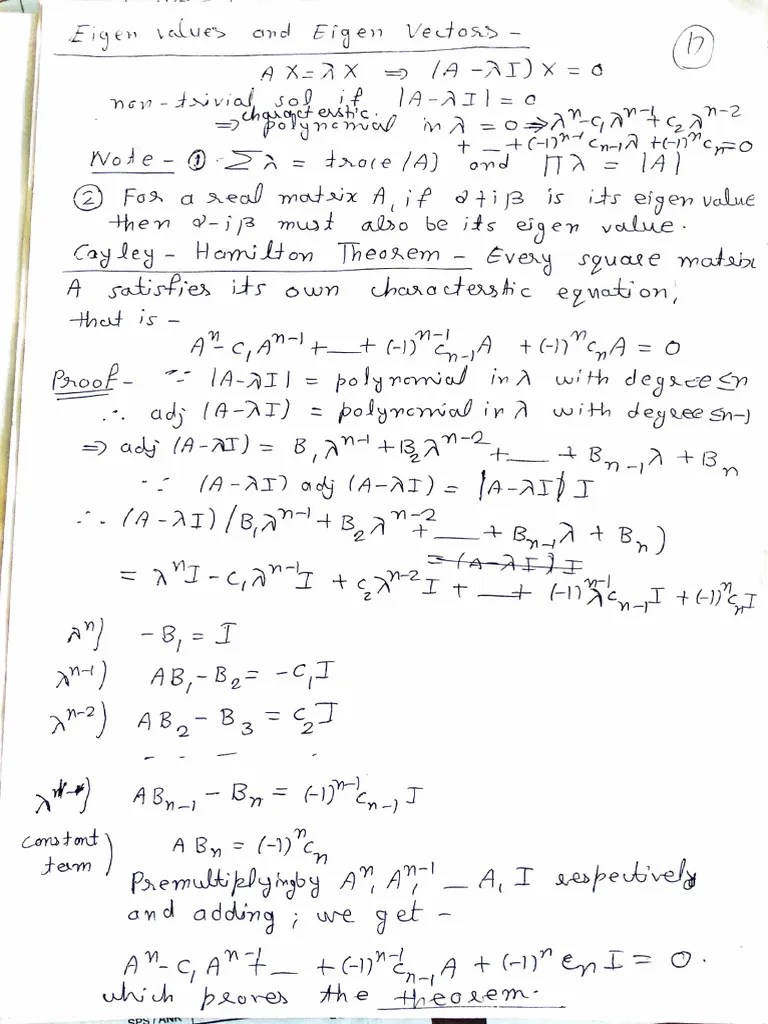 Eigen values and Eigen Vectors -
17
AX = λX ⇒ (A - λI) X = 0
non-trivial sol if |A - λI| = 0
⇒ characterstic polynomial in λ = 0 ⇒ λⁿ - C₁ λⁿ⁻¹ + C₂ λⁿ⁻²
+ _ + (-1)ⁿ⁻¹ Cₙ₋₁ λ + (-1)ⁿ Cₙ = 0
Note - ① Σλ = trace (A) and Πλ = |A|
② For a real matrix A, if α+iβ is its eigen value
then α-iβ must also be its eigen value.
Cayley - Hamilton Theorem - Every square matrix
A satisfies its own characterstic equation,
that is -
Aⁿ - C₁ Aⁿ⁻¹ + __ + (-1)ⁿ⁻¹ Cₙ₋₁ A + (-1)ⁿ Cₙ A = 0
Proof - ∵ |A - λI| = polynomial in λ with degree ≤ n
∴ adj (A - λI) = polynomial in λ with degree ≤ n-1
⇒ adj (A - λI) = B₁ λⁿ⁻¹ + B₂ λⁿ⁻² + __ + Bₙ₋₁ λ + Bₙ
∵ (A - λI) adj (A - λI) = |A - λI| I
∴ (A - λI) (B₁ λⁿ⁻¹ + B₂ λⁿ⁻² + __ + Bₙ₋₁ λ + Bₙ)
= (A - λI) I
= λⁿ I - C₁ λⁿ⁻¹ I + C₂ λⁿ⁻² I + __ + (-1)ⁿ⁻¹ λ Cₙ₋₁ I + (-1)ⁿ Cₙ I
λⁿ) -B₁ = I
λⁿ⁻¹) AB₁ - B₂ = -C₁ I
λⁿ⁻²) AB₂ - B₃ = C₂ I
- - - -
λ) ABₙ₋₁ - Bₙ = (-1)ⁿ⁻¹ Cₙ₋₁ I
constant term) ABₙ = (-1)ⁿ Cₙ
Premultiplying by Aⁿ, Aⁿ⁻¹, _ A, I respectively
and adding, we get -
Aⁿ - C₁ Aⁿ⁻¹ + _ + (-1)ⁿ⁻¹ Cₙ₋₁ A + (-1)ⁿ Cₙ I = 0.
which proves the theorem.